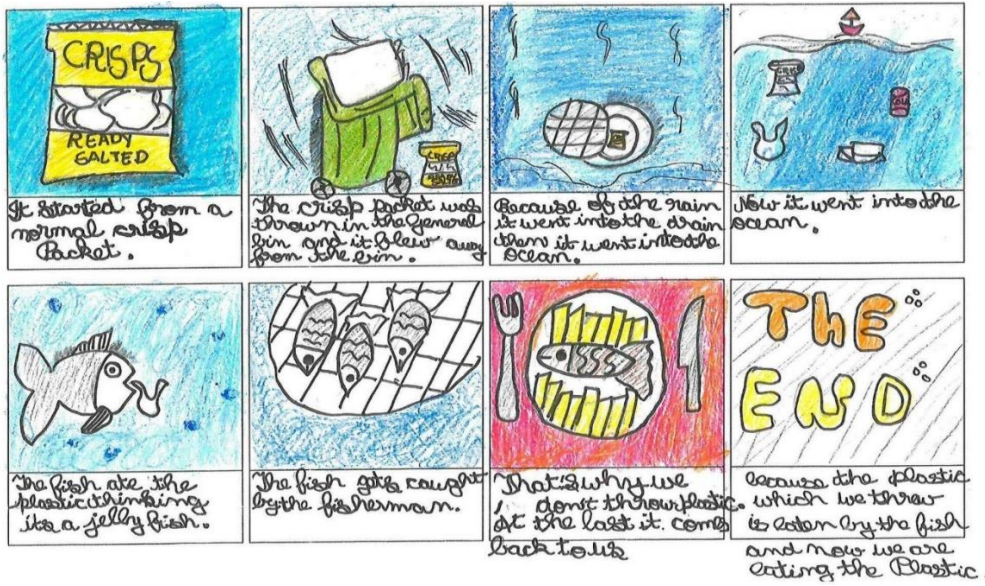 CRISPS
READY
SALTED
It started from a
normal crisp
Packet.
CRISP
The crisp packet was
thrown in the general
bin and it blew away
from the bin.
Because of the rain
it went into the drain
then it went into the
ocean.
Now it went into the
ocean.
The fish ate the
plastic thinking
its a jelly fish.
The fish gets caught
by the fisherman.
That's why we
don't throw plastic.
At the last it comes
back to us
THE
END
because the plastic
which we threw
is eaten by the fish
and now we are
eating the Plastic